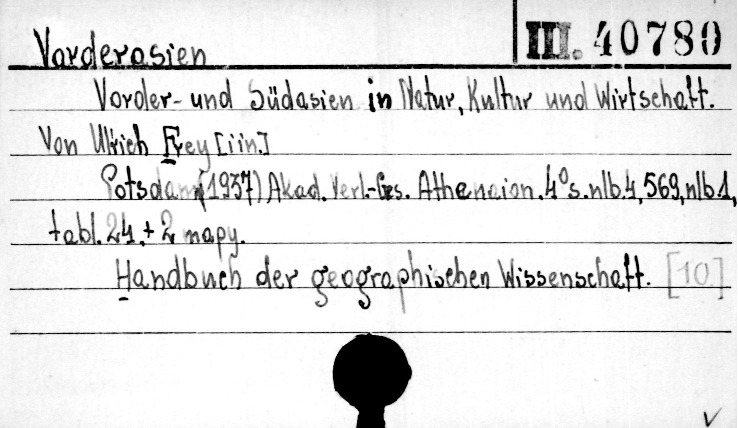 III. 40780
Vorderasien
Vorder- und Südasien in Natur, Kultur und Wirtschaft.
Von Ulrich Frey [iin.]
Potsdam (1937) Akad. Verl.-Ges. Athenaion. 4° s. nlb. 4, 569, nlb 1,
tabl. 24. + 2 mapy.
Handbuch der geographischen Wissenschaft. [10]